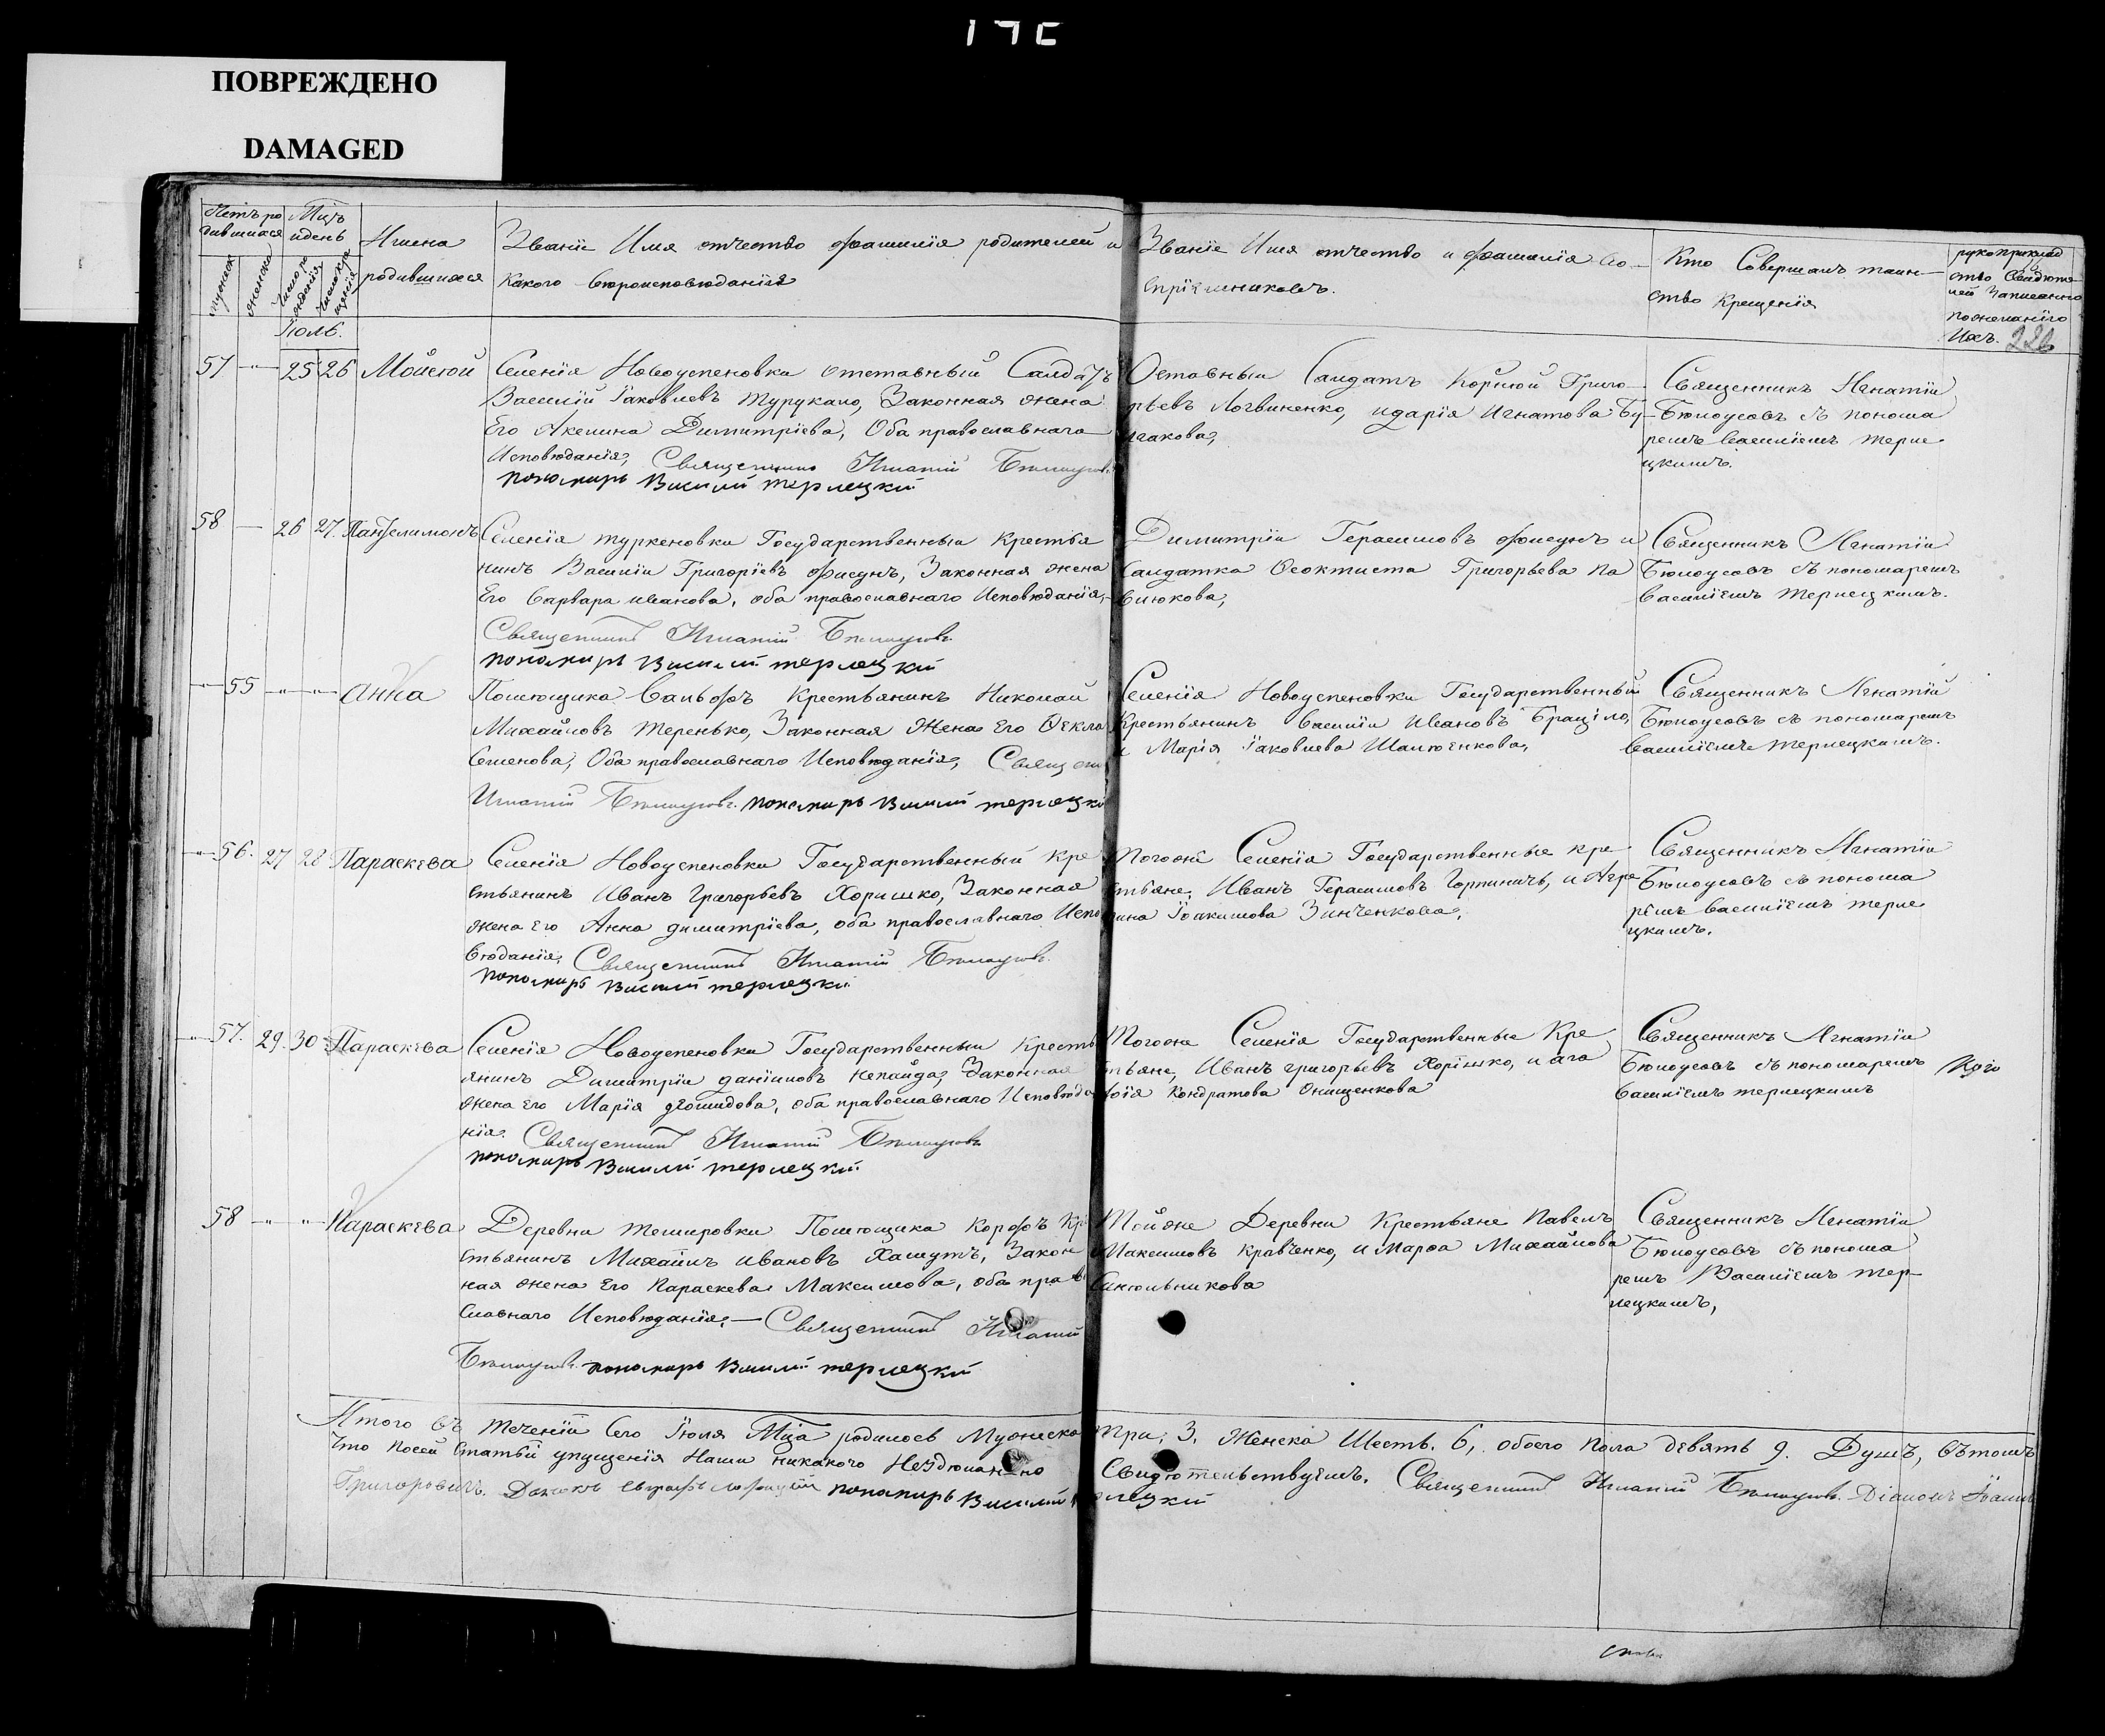 17C
ПОВРЕЖДЕНО
DAMAGED
Счетъ ро
дившихся
Мцъ
и день
Имена
родившихся
Званіе Имя отчество фамилія родителей и
какого вѣроисповѣданія
Званіе Имя отчество и фамилія во
спріемниковъ.
Кто Совершалъ таин-
ство Крещенія
рукоприклад
ство Свидѣте
лей Записанно
по желанію
Ихъ. 226
мужеска
женска
Число ро
жденія
Число кре
щенія
Іюль.
57 -"- 25 26 Мойсей
Селенія Новоуспеновки отставный Салдатъ
Василій Яковлевъ Турукало, Законная жена
Его Акелина Димитріева, Оба православнаго
Исповѣданія, Священникъ Игнатій Бѣлоусовъ
пономарь Василій терлецкій
Оставный Салдатъ Корній Григо
рьевъ Логвиненко, и дарія Игнатова Бу
лакова,
Священникъ Игнатіи
Бѣлоусовъ съ понома
ремъ Василіемъ терле
цкимъ.
58 - 26 27. Пантелимонъ
Селенія туркеновки Государственныи Крестья
нинъ Василіи Григоріевъ фисунъ, Законная жена
Его Варвара иванова, оба православнаго Исповѣданія,
Священникъ Игнатій Бѣлоусовъ
пономарь Василій терлецкій
Димитріи Герасимовъ фисунъ и
Салдатка Феоктиста Григорьева Па
влюкова,
Священникъ Игнатіи
Бѣлоусовъ съ пономаремъ
Василіемъ терлецкимъ.
-"- 55 -"- -"- Анна
Помѣщика Крестьянинъ Николай
Михайловъ Теренько, Законная Жена Его Фекла
Семенова, Оба православнаго Исповѣданія, Священ
Игнатій Бѣлоусовъ. пономарь Василій терлецкі
Селенія Новоуспеновки Государственный
Крестьянинъ Василіи Ивановъ
и Марія Яковлева
Священникъ Игнатій
Бѣлоусовъ съ пономаремъ
Василіемъ терлецкимъ.
-"- 56. 27 28 Параскева
Селенія Новоуспеновки Государственный Кре
стьянинъ Иванъ Григорьевъ Хоришко, Законная
жена Его Анна димитріева, оба православнаго Испо
вѣданія, Священникъ Игнатій Бѣлоусовъ.
пономарь Василій терлецкій
Тогоже Селенія Государственные кре
стьяне, Иванъ Герасимовъ Горпиничъ, и Агре
пина Іоакимова Зинченкова,
Священникъ Игнатіи
Бѣлоусовъ съ понома
ремъ Василіемъ терле
цкимъ.
-"- 57. 29. 30 Параскева
Селенія Новоуспеновки Государственныи Кресть
янинъ Димитріи даніиловъ Непайда, Законная
жена Его Марія діомидова, оба православнаго Исповѣда
нія. Священникъ Игнатій Бѣлоусовъ
пономарь Василій терлецкій.
Тогоже Селенія Государственные Кре
стьяне, Иванъ григорьевъ Хоришко, и ага
фія Кондратова Онищенкова
Священникъ Игнатіи
Бѣлоусовъ съ пономаремъ
Василіемъ терлецкимъ
58 -"- -"- Параскева
Деревни темировки Помѣщика Корфъ Кр
стьянинъ Михаилъ ивановъ Хашутъ, Закон
ная жена Его Параскева Максимова, оба право
славнаго Исповѣданія,— Священникъ Игнатій
Бѣлоусовъ. пономарь Василій терлецкій
Тойже Деревни Крестьяне Павелъ
Максимовъ Кравченко, и Марфа Михайлова
Синюльникова
Священникъ Игнатіи
Бѣлоусовъ съ понома
ремъ Василіемъ тер-
лецкимъ,
Итого въ теченіи Сего Іюля Мца родилось Мужеска три, 3. Женска Шесть. 6, обоего пола девять 9. Душъ, вѣтомъ
Что посей Статьи упущенія Нами никакого Нездѣланно Свидѣтельствуемъ. Священникъ Игнатій Бѣлоусовъ. Діаконъ Іоаннъ
Григоровичъ. Дьячокъ пономарь Василій терлецкій